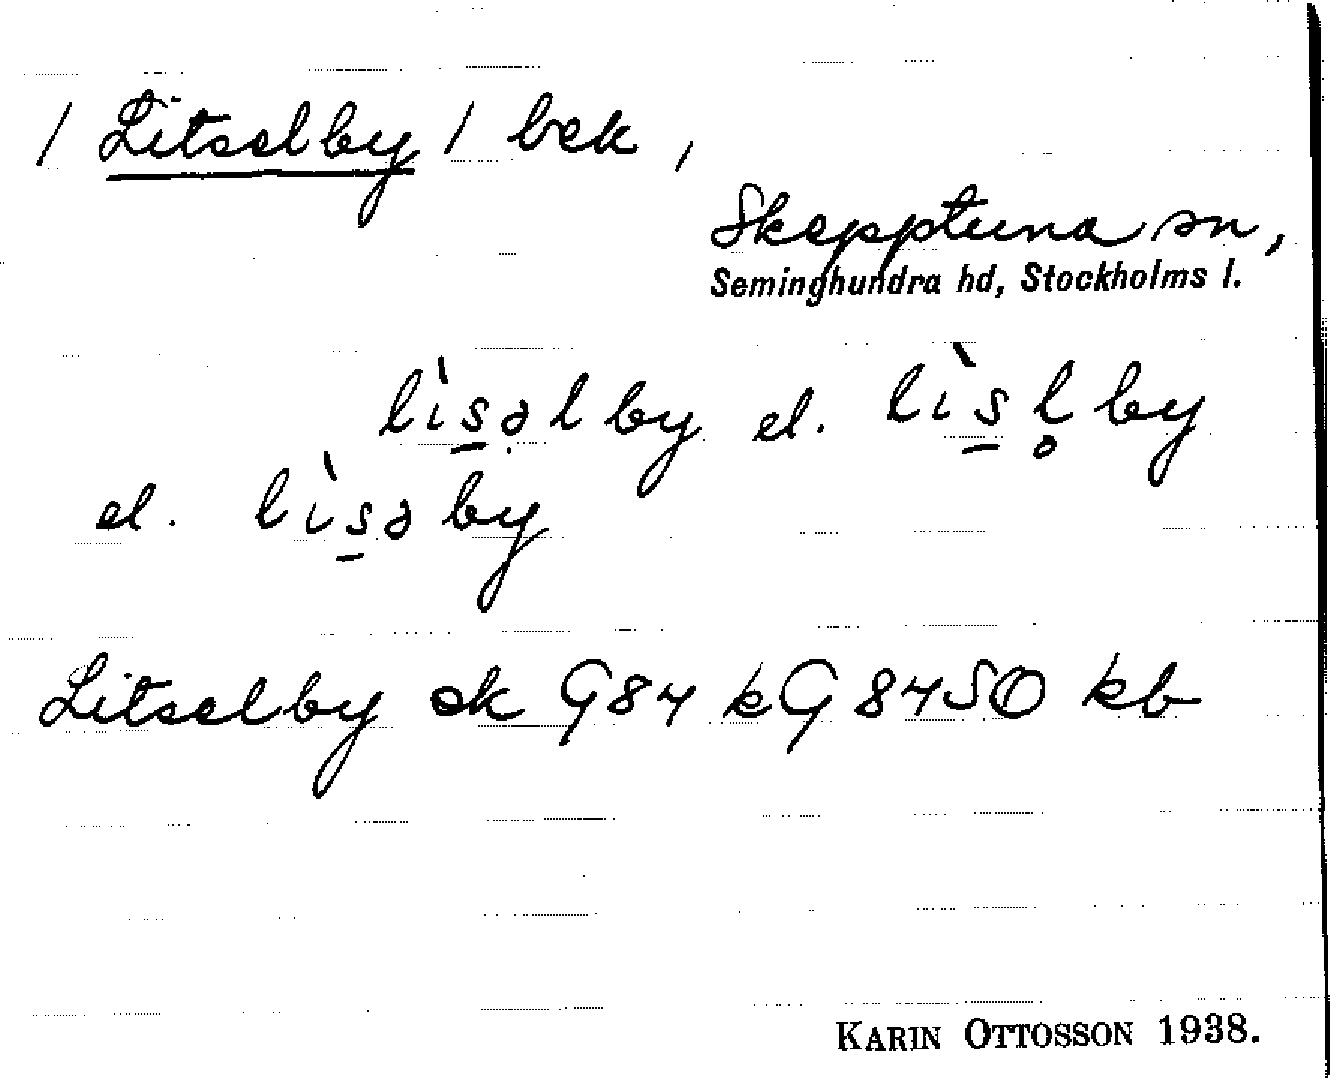 / Litselby / bek,
Skepptuna sn,
Seminghundra hd, Stockholms l.
lìs̠əlby el. lìs̠l̥by
el. lìs̠əby
Litselby ek G84 kG 84SO kb
KARIN OTTOSSON 1938.